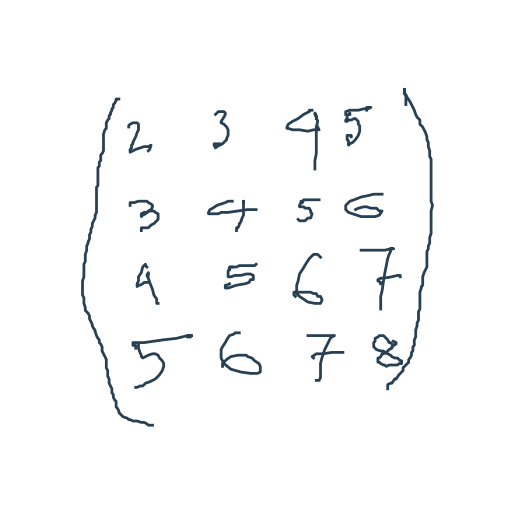 2 3 4 5
3 4 5 6
4 5 6 7
5 6 7 8